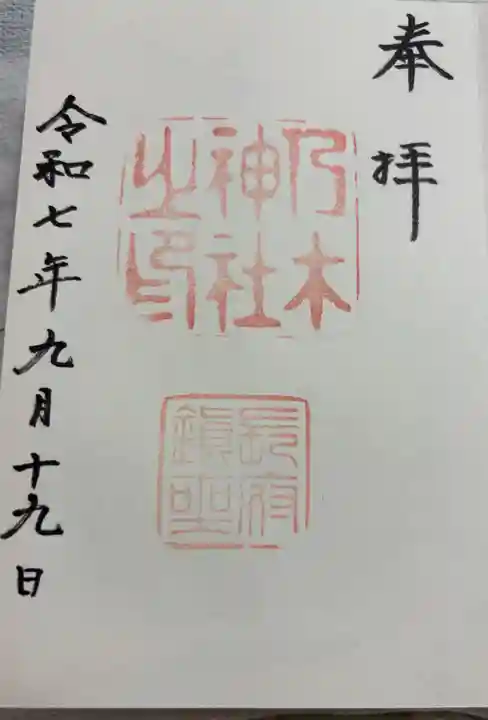 奉拝
乃木
神社
之印
長府
鎮聖
令和七年九月十九日